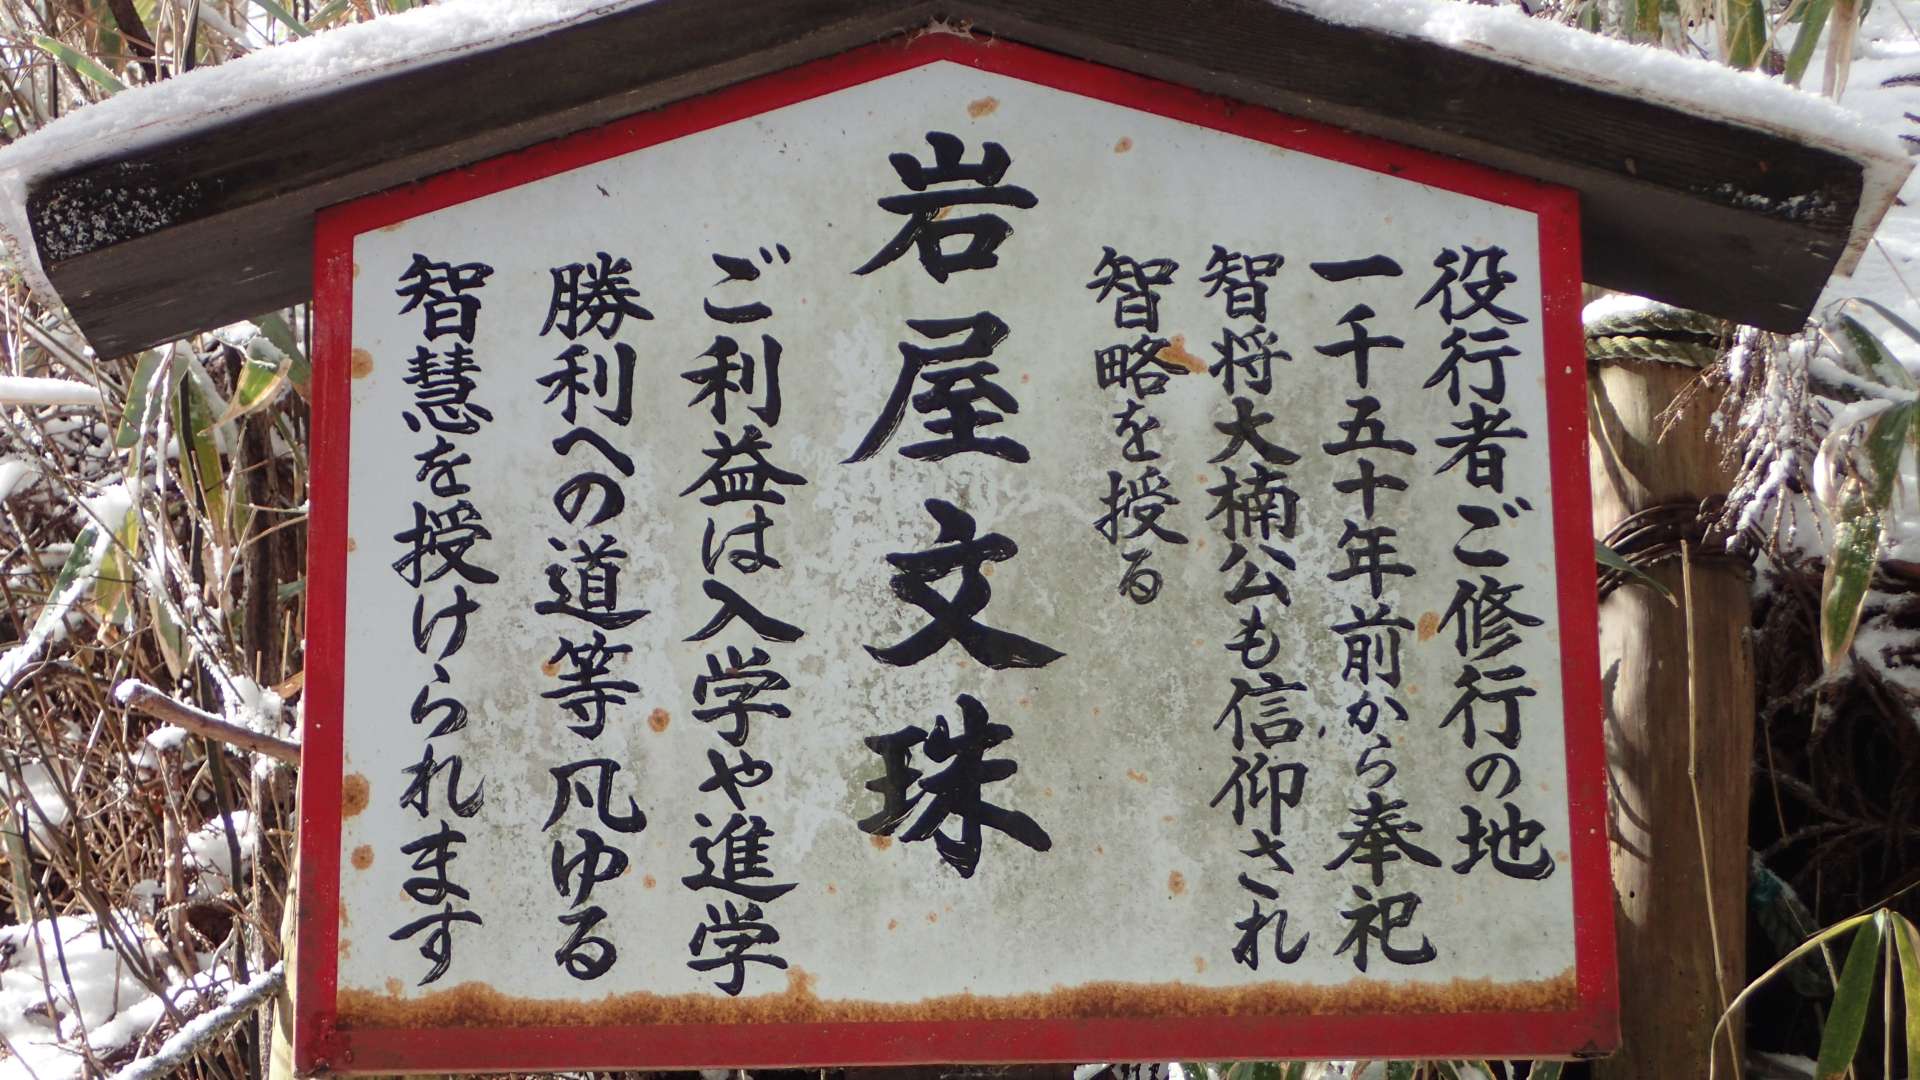 役行者ご修行の地
一千五十年前から奉祀
智将大楠公も信仰され
智略を授る
岩屋文珠
ご利益は入学や進学
勝利への道等凡ゆる
智慧を授けられます